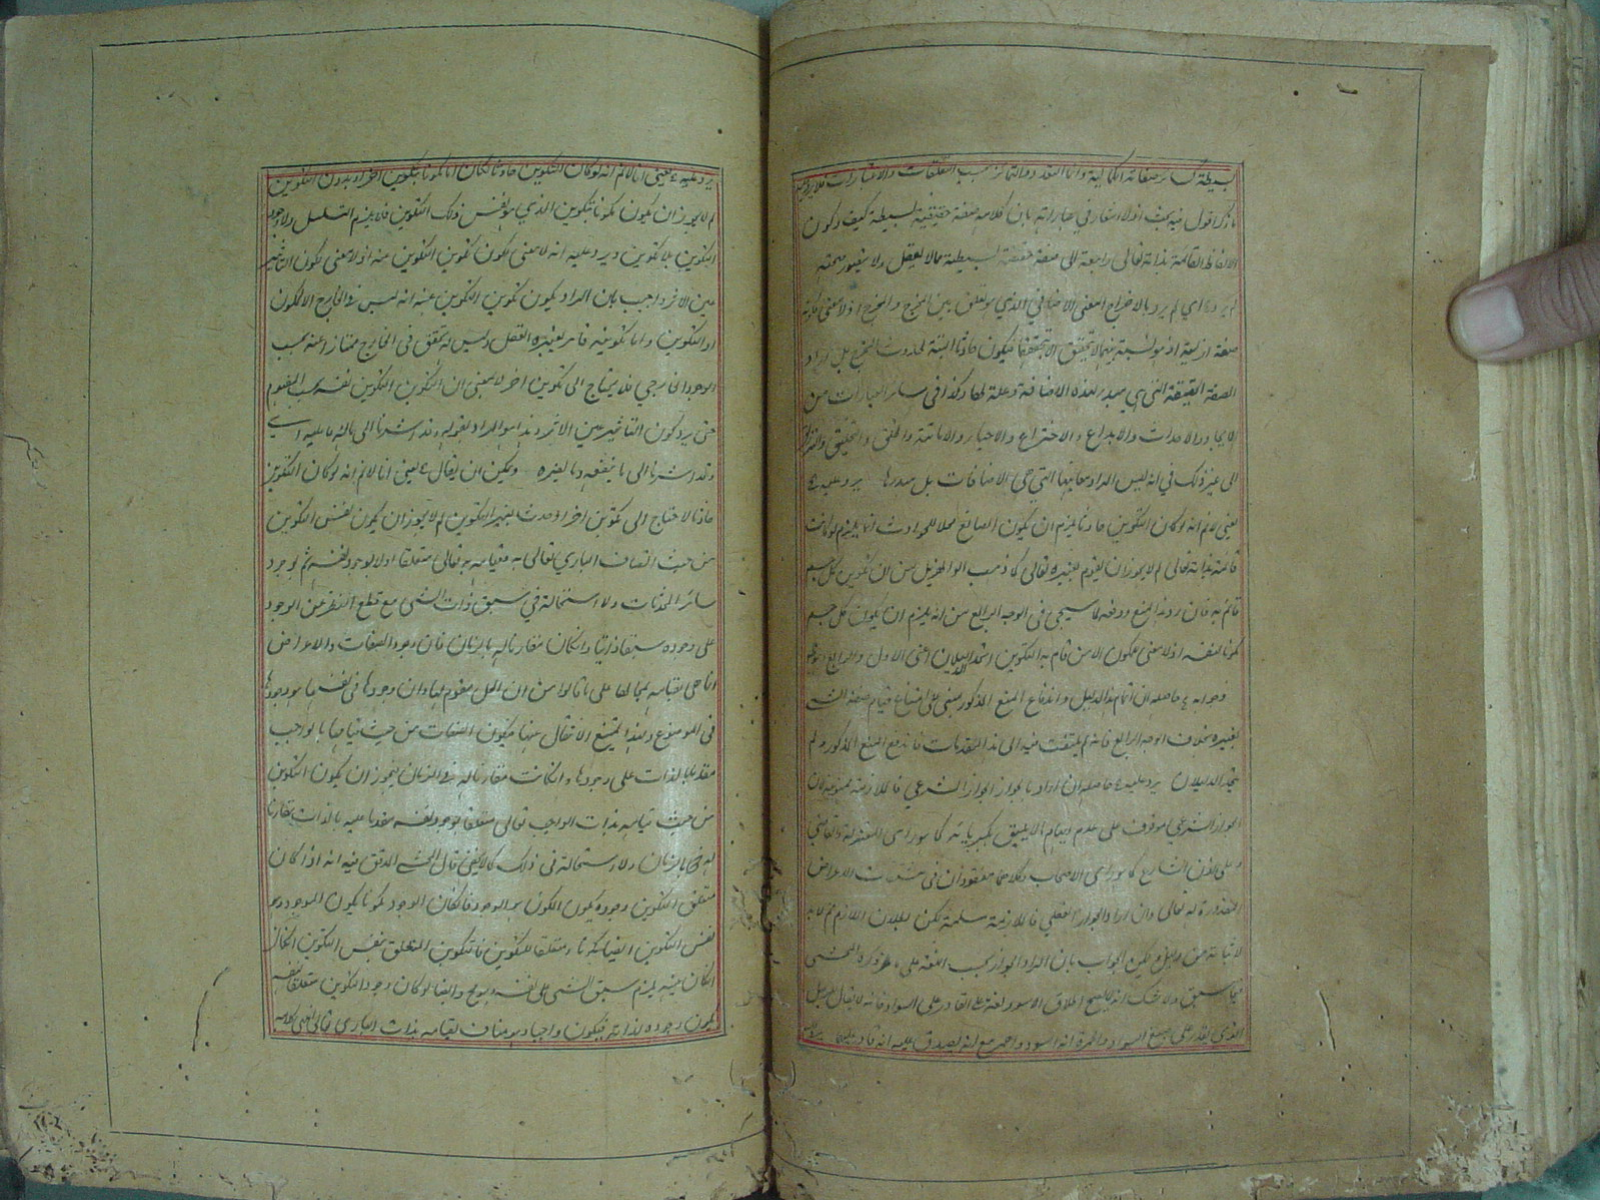 بسيطة كسائر صفاته الكمالية وانما التعدد والتمايز بحسب التعلقات والاعتبارات فلا يرد
ما ذكر اقول فيه بحث اذ لا اشعار في عبارته بان كلامه صفة حقيقية بسيطة كيف وكون
الالفاظ القائمة بذاته تعالى راجعة الى صفة حقيقية بسيطة مما لا يعقل ولا يتصور صحته
لم يرد اي لم يرد بالاخراج المعنى الاضافي الذي هو تعلق بين المخرج والمخرج اذ لا معنى لكونه
صفة ازلية اذ هو نسبة بينهما لا تتحقق الا بتحققهما فيكون حادثا البتة لحدوث المخرج بل اراد
الصفة الحقيقة التي هي مبدء لهذه الاضافة وعلة لها وكذا في سائر العبارات من
الايجاد والاحداث والابداع والاختراع والاحياء والاماتة والخلق والتخليق والترزيق
الى غير ذلك في انه ليس المراد معانيها التي هي الاضافات بل مبدءها يرد عليه
يعني لا نم انه لو كان التكوين حادثا يلزم ان يكون الصانع محلا للحوادث انما يلزم لو كانت
قائمة بذاته تعالى لم لا يجوز ان يقوم بغيره تعالى كما ذهب ابو الهذيل من ان تكوين كل جسم
قائم به فان رد هذا المنع ودفعه بما سيجئ في الوجه الرابع من انه يلزم ان يكون كل جسم
مكونا لنفسه اذ لا معنى للمكون الا من قام به التكوين اتحد الدليلان اعني الاول والرابع
وجوابه حاصله ان اتمام هذا الدليل واندفاع المنع المذكور مبني على امتناع قيام صفة الشئ
بغيره بخلاف الوجه الرابع فانه لم يلتفت فيه الى هذا المقدمات فاندفع المنع المذكور ولم
يتحد الدليلان يرد عليه حاصله ان اراد بالجواز الجواز الشرعي فالملازمة ممنوعة لان
الجواز الشرعي موقوف على عدم ايهام ما لا يليق بكبريائه كما هو رأى المعتزلة والقاضي
و على اذن الشارع كما هو رأى الاصحاب وكلاهما مفقودان في مشتقات الاعراض
المقدورة له تعالى وان اراد الجواز العقلي فالملازمة مسلمة لكن بطلان اللازم مم لا بد
لاثباته من دليل ويمكن الجواب بان المراد الجواز بحسب اللغة على ما ذكره المحشي
فيما سبق ولا شك انه لا يصح اطلاق الاسود لغة على القادر على السواد فانه لا يقال للرجل
الذي يقدر على صبغ السواد والحمرة انه اسود واحمر مع انه يصدق عليه انه قادر عليهما
يرد عليه يعني انا لا نم انه لو كان التكوين حادثا لكان اما مكونا بتكوين اخر او بدون التكوين
لم لا يجوز ان يكون مكونا بتكوين الذي هو نفس ذلك التكوين فلا يلزم التسلسل ولا وجود
التكوين بلا تكوين ويرد عليه انه لا معنى لكون تكوين التكوين عينه اذ لا معنى لكون التأثير
عين الاثر واجيب بان المراد بكون تكوين التكوين عينه انه ليس في الخارج الا المكون
او التكوين واما تكوينه فامر يعتبره العقل وليس له تحقق في الخارج ممتاز عنه بحسب
الوجود الخارجي فلا يحتاج الى تكوين اخر لا بمعنى ان التكوين التكوين نفسه بحسب المفهوم
حتى يرد كون التأثير عين الاثر وهذا هو المراد بقوله وقد اشرنا الى ما له وما عليه اي
وقد اشرنا الى ما ينفعه وما يضره ويمكن ان يقال يعني انا لا نم انه لو كان التكوين
حادثا لاحتاج الى تكوين اخر او حدث بغير التكوين لم لا يجوز ان يكون نفس التكوين
من حيث اتصاف الباري تعالى به وقيامه به تعالى متعلقا اولا بوجود نفسه ثم بوجود
سائر المحدثات ولا استحالة في سبق ذات الشئ مع قطع النظر عن الوجود
على وجوده سبقا ذاتيا وان كان مقارنا له بالزمان فان وجود الصفات والاعراض
انما هي بقيامه بمحالها على ما قالوا من ان المحل مقوم لها وان وجودها في نفسها هو وجودها
في الموضوع ولهذا يمتنع الانتقال عنها فيكون الصفات من حيث قيامها بالواجب
مقدما بالذات على وجودها وان كانت مقارنا له في الزمان فيجوز ان يكون التكوين
من حيث قيامه بذات الواجب تعالى متعلقا بوجود نفسه مقدما عليه بالذات مقارنا
له في الزمان ولا استحالة في ذلك كما لا يخفى قال المحشي المدقق فيه انه اذا كان
متعلق التكوين وجوده يكون المكون هو الموجود فان كان الوجود مكونا يكون الموجود هو
نفس التكوين ايضا متعلقا للتكوين فالتكوين المتعلق بنفس التكوين ان كان
ان كان عينه يلزم سبق الشئ على نفسه وايضا لو كان وجود التكوين متعلقا بنفسه
يكون وجوده لذاته فيكون واجبا وهو مناف لقيامه بذات الباري تعالى انتهى كلامه